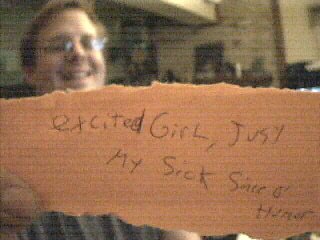 excited Girl, Just
My Sick Since of
Humor